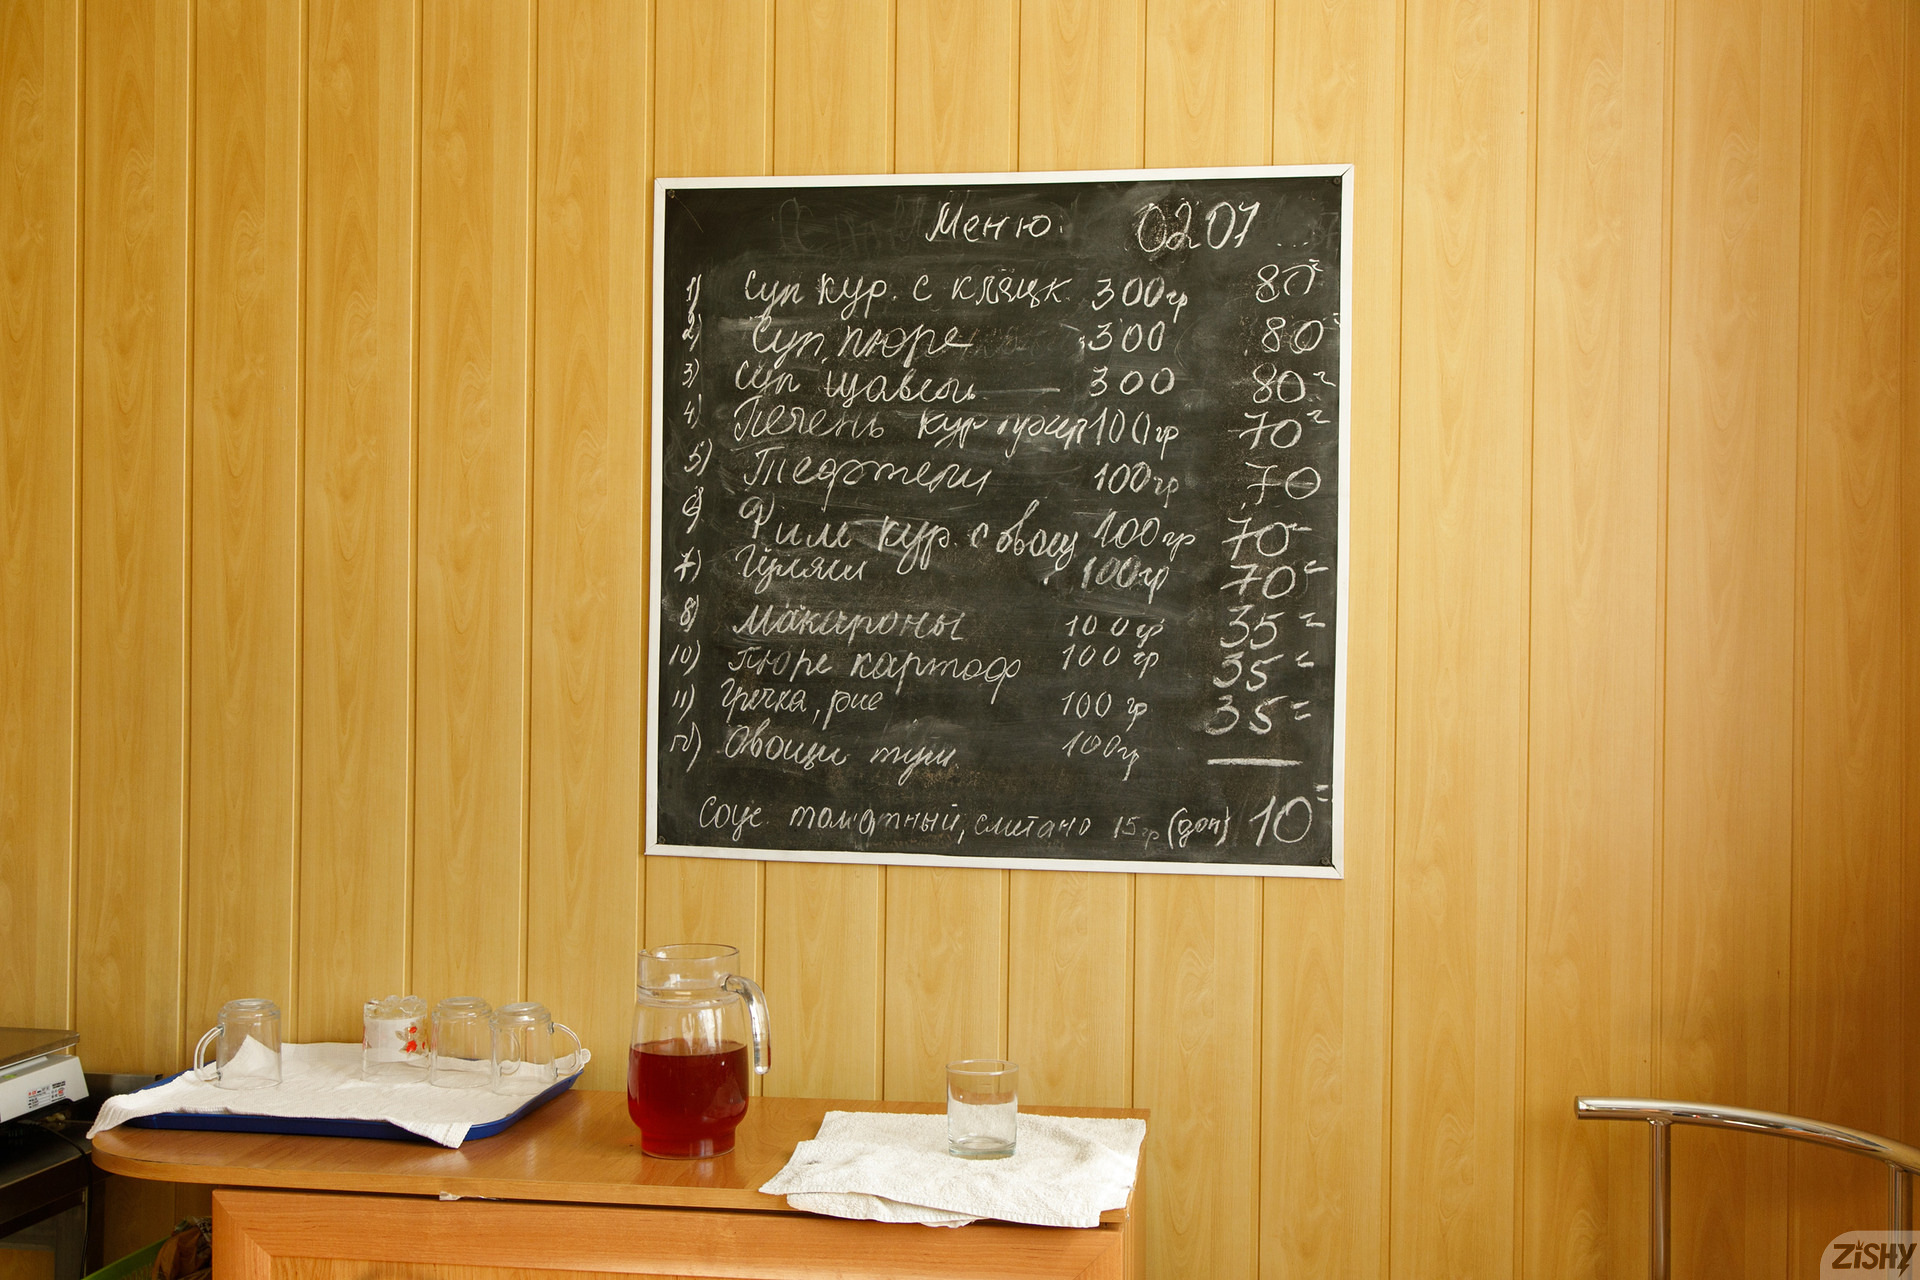 Меню. 02 07
1) Суп кур. с клёцк. 300гр 80=
2) Суп, пюре 300 80=
3) Суп щавел. — 300 80=
4) Печень кур 100гр 70=
5) Тефтели 100гр 70
6) Филе кур. с овощ 100гр 70=
7) Гуляш 100гр 70=
8) Макароны 100гр 35=
10) Пюре картоф 100гр 35=
11) Гречка, рис 100гр 35=
12) Овощи туш. 100гр —
Соус томатный, сметано 15гр (доп) 10=
ZiSHY